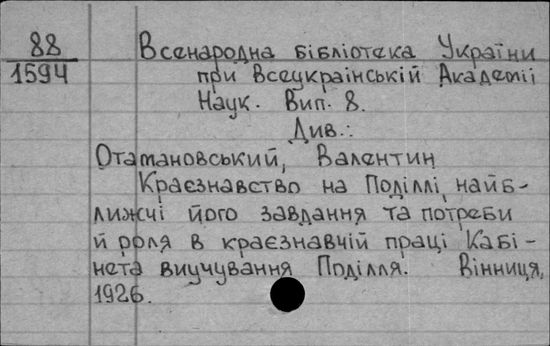 88 Всенародна бібліотека України
1594 при Всеукраінській Академії
Наук. Вип. 8.
Див.:
Отамановський, Валентин
Краєзнавство на Поділлі, найб-
лижчі його завдання та потреби
й роля в краєзнавчій праці Кабі-
нета виучування Поділля. Вінниця,
1926.